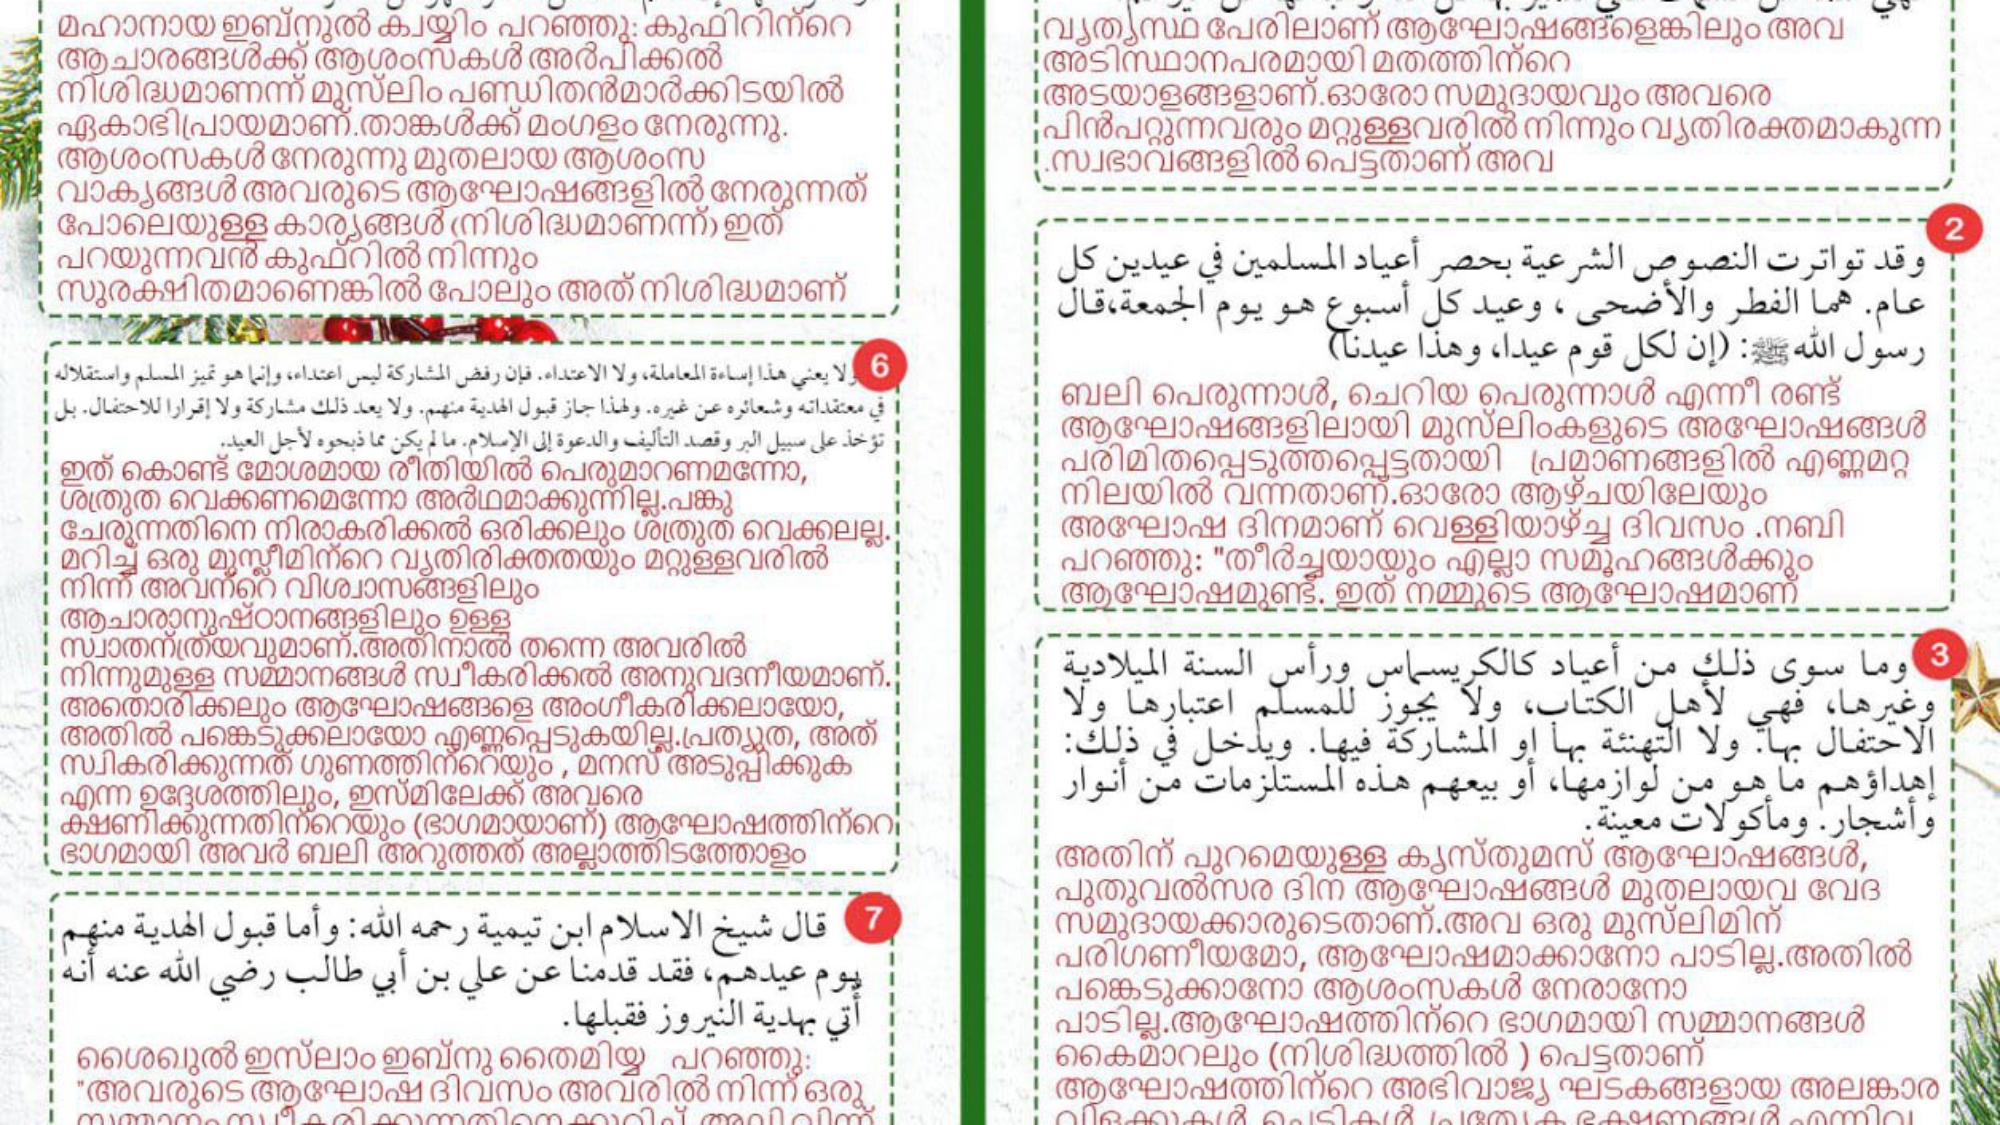 മഹാനായ ഇബ്നുൽ ക്വയ്യിം പറഞ്ഞു: കുഫിറിന്റെ
ആചാരങ്ങൾക്ക് ആശംസകൾ അർപിക്കൽ
നിശിദ്ധമാണന്ന് മുസ്ലിം പണ്ഡിതൻമാർക്കിടയിൽ
ഏകാഭിപ്രായമാണ്.താങ്കൾക്ക് മംഗളം നേരുന്നു.
ആശംസകൾ നേരുന്നു മുതലായ ആശംസ
വാക്യങ്ങൾ അവരുടെ ആഘോഷങ്ങളിൽ നേരുന്നത്
പോലെയുള്ള കാര്യങ്ങൾ (നിശിദ്ധമാണന്ന്) ഇത്
പറയുന്നവൻ കുഫ്റിൽ നിന്നും
സുരക്ഷിതമാണെങ്കിൽ പോലും അത് നിശിദ്ധമാണ്
6
ولا يعني هذا إساءة المعاملة، ولا الاعتداء. فإن رفض المشاركة ليس اعتداء، وإنما هو تميز المسلم واستقلاله
في معتقداته وشعائره عن غيره. ولهذا جاز قبول الهدية منهم. ولا يعد ذلك مشاركة ولا إقرارا للاحتفال. بل
تؤخذ على سبيل البر وقصد التأليف والدعوة إلى الإسلام. ما لم يكن مما ذبحوه لأجل العيد.
ഇത് കൊണ്ട് മോശമായ രീതിയിൽ പെരുമാറണമന്നോ,
ശത്രുത വെക്കണമെന്നോ അർഥമാക്കുന്നില്ല.പങ്കു
ചേരുന്നതിനെ നിരാകരിക്കൽ ഒരിക്കലും ശത്രുത വെക്കലല്ല.
മറിച്ച് ഒരു മുസ്ലീമിന്റെ വ്യതിരിക്തതയും മറ്റുള്ളവരിൽ
നിന്ന് അവന്റെ വിശ്വാസങ്ങളിലും
ആചാരാനുഷ്ഠാനങ്ങളിലും ഉള്ള
സ്വാതന്ത്ര്യവുമാണ്.അതിനാൽ തന്നെ അവരിൽ
നിന്നുമുള്ള സമ്മാനങ്ങൾ സ്വീകരിക്കൽ അനുവദനീയമാണ്.
അതൊരിക്കലും ആഘോഷങ്ങളെ അംഗീകരിക്കലായോ,
അതിൽ പങ്കെടുക്കലായോ എണ്ണപ്പെടുകയില്ല.പ്രത്യുത, അത്
സ്വികരിക്കുന്നത് ഗുണത്തിന്റെയും , മനസ് അടുപ്പിക്കുക
എന്ന ഉദ്ദേശത്തിലും, ഇസ്മിലേക്ക് അവരെ
ക്ഷണിക്കുന്നതിന്റെയും (ഭാഗമായാണ്) ആഘോഷത്തിന്റെ
ഭാഗമായി അവർ ബലി അറുത്തത് അല്ലാത്തിടത്തോളം
7
قال شيخ الاسلام ابن تيمية رحمه الله: وأما قبول الهدية منهم
يوم عيدهم، فقد قدمنا عن علي بن أبي طالب رضي الله عنه أنه
أُتي بهدية النيروز فقبلها.
ശൈഖുൽ ഇസ്ലാം ഇബ്നു തൈമിയ്യ പറഞ്ഞു:
"അവരുടെ ആഘോഷ ദിവസം അവരിൽ നിന്ന് ഒരു
വ്യത്യസ്ഥ പേരിലാണ് ആഘോഷങ്ങളെങ്കിലും അവ
അടിസ്ഥാനപരമായി മതത്തിന്റെ
അടയാളങ്ങളാണ്.ഓരോ സമുദായവും അവരെ
പിൻപറ്റുന്നവരും മറ്റുള്ളവരിൽ നിന്നും വ്യതിരക്തമാകുന്ന
.സ്വഭാവങ്ങളിൽ പെട്ടതാണ് അവ
2
وقد تواترت النصوص الشرعية بحصر أعياد المسلمين في عيدين كل
عام. هما الفطر والأضحى ، وعيد كل أسبوع هو يوم الجمعة،قال
رسول الله ﷺ: (إن لكل قوم عيدا، وهذا عيدنا)
ബലി പെരുന്നാൾ, ചെറിയ പെരുന്നാൾ എന്നീ രണ്ട്
ആഘോഷങ്ങളിലായി മുസ്ലിംകളുടെ അഘോഷങ്ങൾ
പരിമിതപ്പെടുത്തപ്പെട്ടതായി പ്രമാണങ്ങളിൽ എണ്ണമറ്റ
നിലയിൽ വന്നതാണ്.ഓരോ ആഴ്ചയിലേയും
അഘോഷ ദിനമാണ് വെള്ളിയാഴ്ച്ച ദിവസം .നബി
പറഞ്ഞു: "തീർച്ചയായും എല്ലാ സമൂഹങ്ങൾക്കും
ആഘോഷമുണ്ട്. ഇത് നമ്മുടെ ആഘോഷമാണ്
3
وما سوى ذلك من أعياد كالكريسماس ورأس السنة الميلادية
وغيرها، فهي لأهل الكتاب، ولا يجوز للمسلم اعتبارها ولا
الاحتفال بها. ولا التهنئة بها او المشاركة فيها. ويدخل في ذلك:
إهداؤهم ما هو من لوازمها، أو بيعهم هذه المستلزمات من أنوار
وأشجار. ومأكولات معينة.
അതിന് പുറമെയുള്ള കൃസ്തുമസ് ആഘോഷങ്ങൾ,
പുതുവൽസര ദിന ആഘോഷങ്ങൾ മുതലായവ വേദ
സമുദായക്കാരുടെതാണ്.അവ ഒരു മുസ്ലിമിന്
പരിഗണീയമോ, ആഘോഷമാക്കാനോ പാടില്ല.അതിൽ
പങ്കെടുക്കാനോ ആശംസകൾ നേരാനോ
പാടില്ല.ആഘോഷത്തിന്റെ ഭാഗമായി സമ്മാനങ്ങൾ
കൈമാറലും (നിശിദ്ധത്തിൽ ) പെട്ടതാണ്
ആഘോഷത്തിന്റെ അഭിവാജ്യ ഘടകങ്ങളായ അലങ്കാര